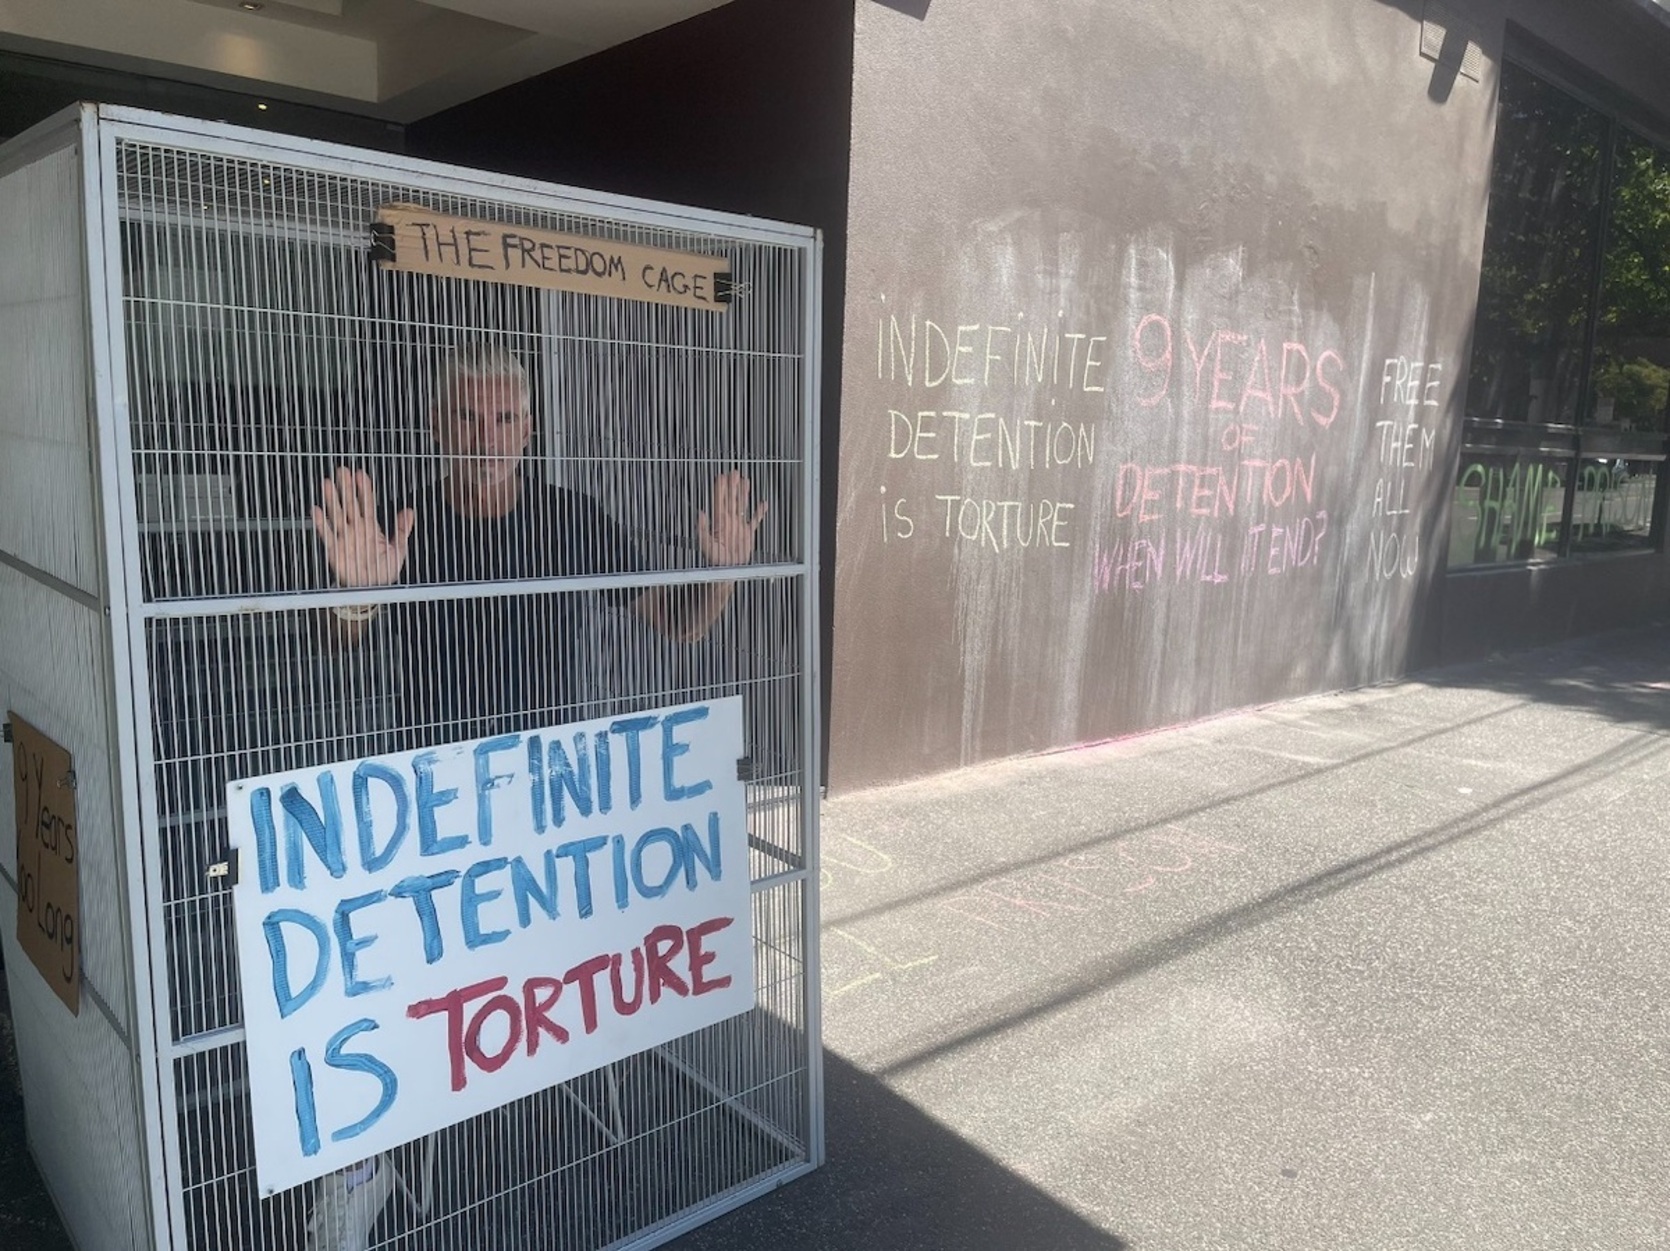 THE FREEDOM CAGE
INDEFINITE
DETENTION
IS TORTURE
9 Years
Long
INDEFINITE
DETENTION
IS TORTURE
9 YEARS
OF
DETENTION
WHEN WILL IT END?
FREE
THEM
ALL
NOW
SHAME